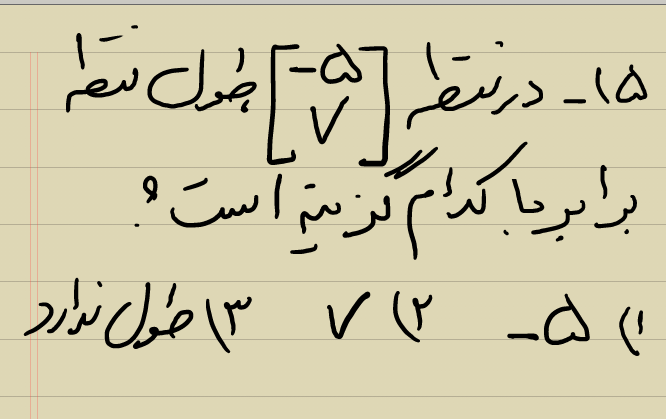 ۱۵ـ در نقطه [-۵ ۷] طول نقطه
برابر با کدام گزینه است؟
۱) -۵ ۲) ۷ ۳) طول ندارد